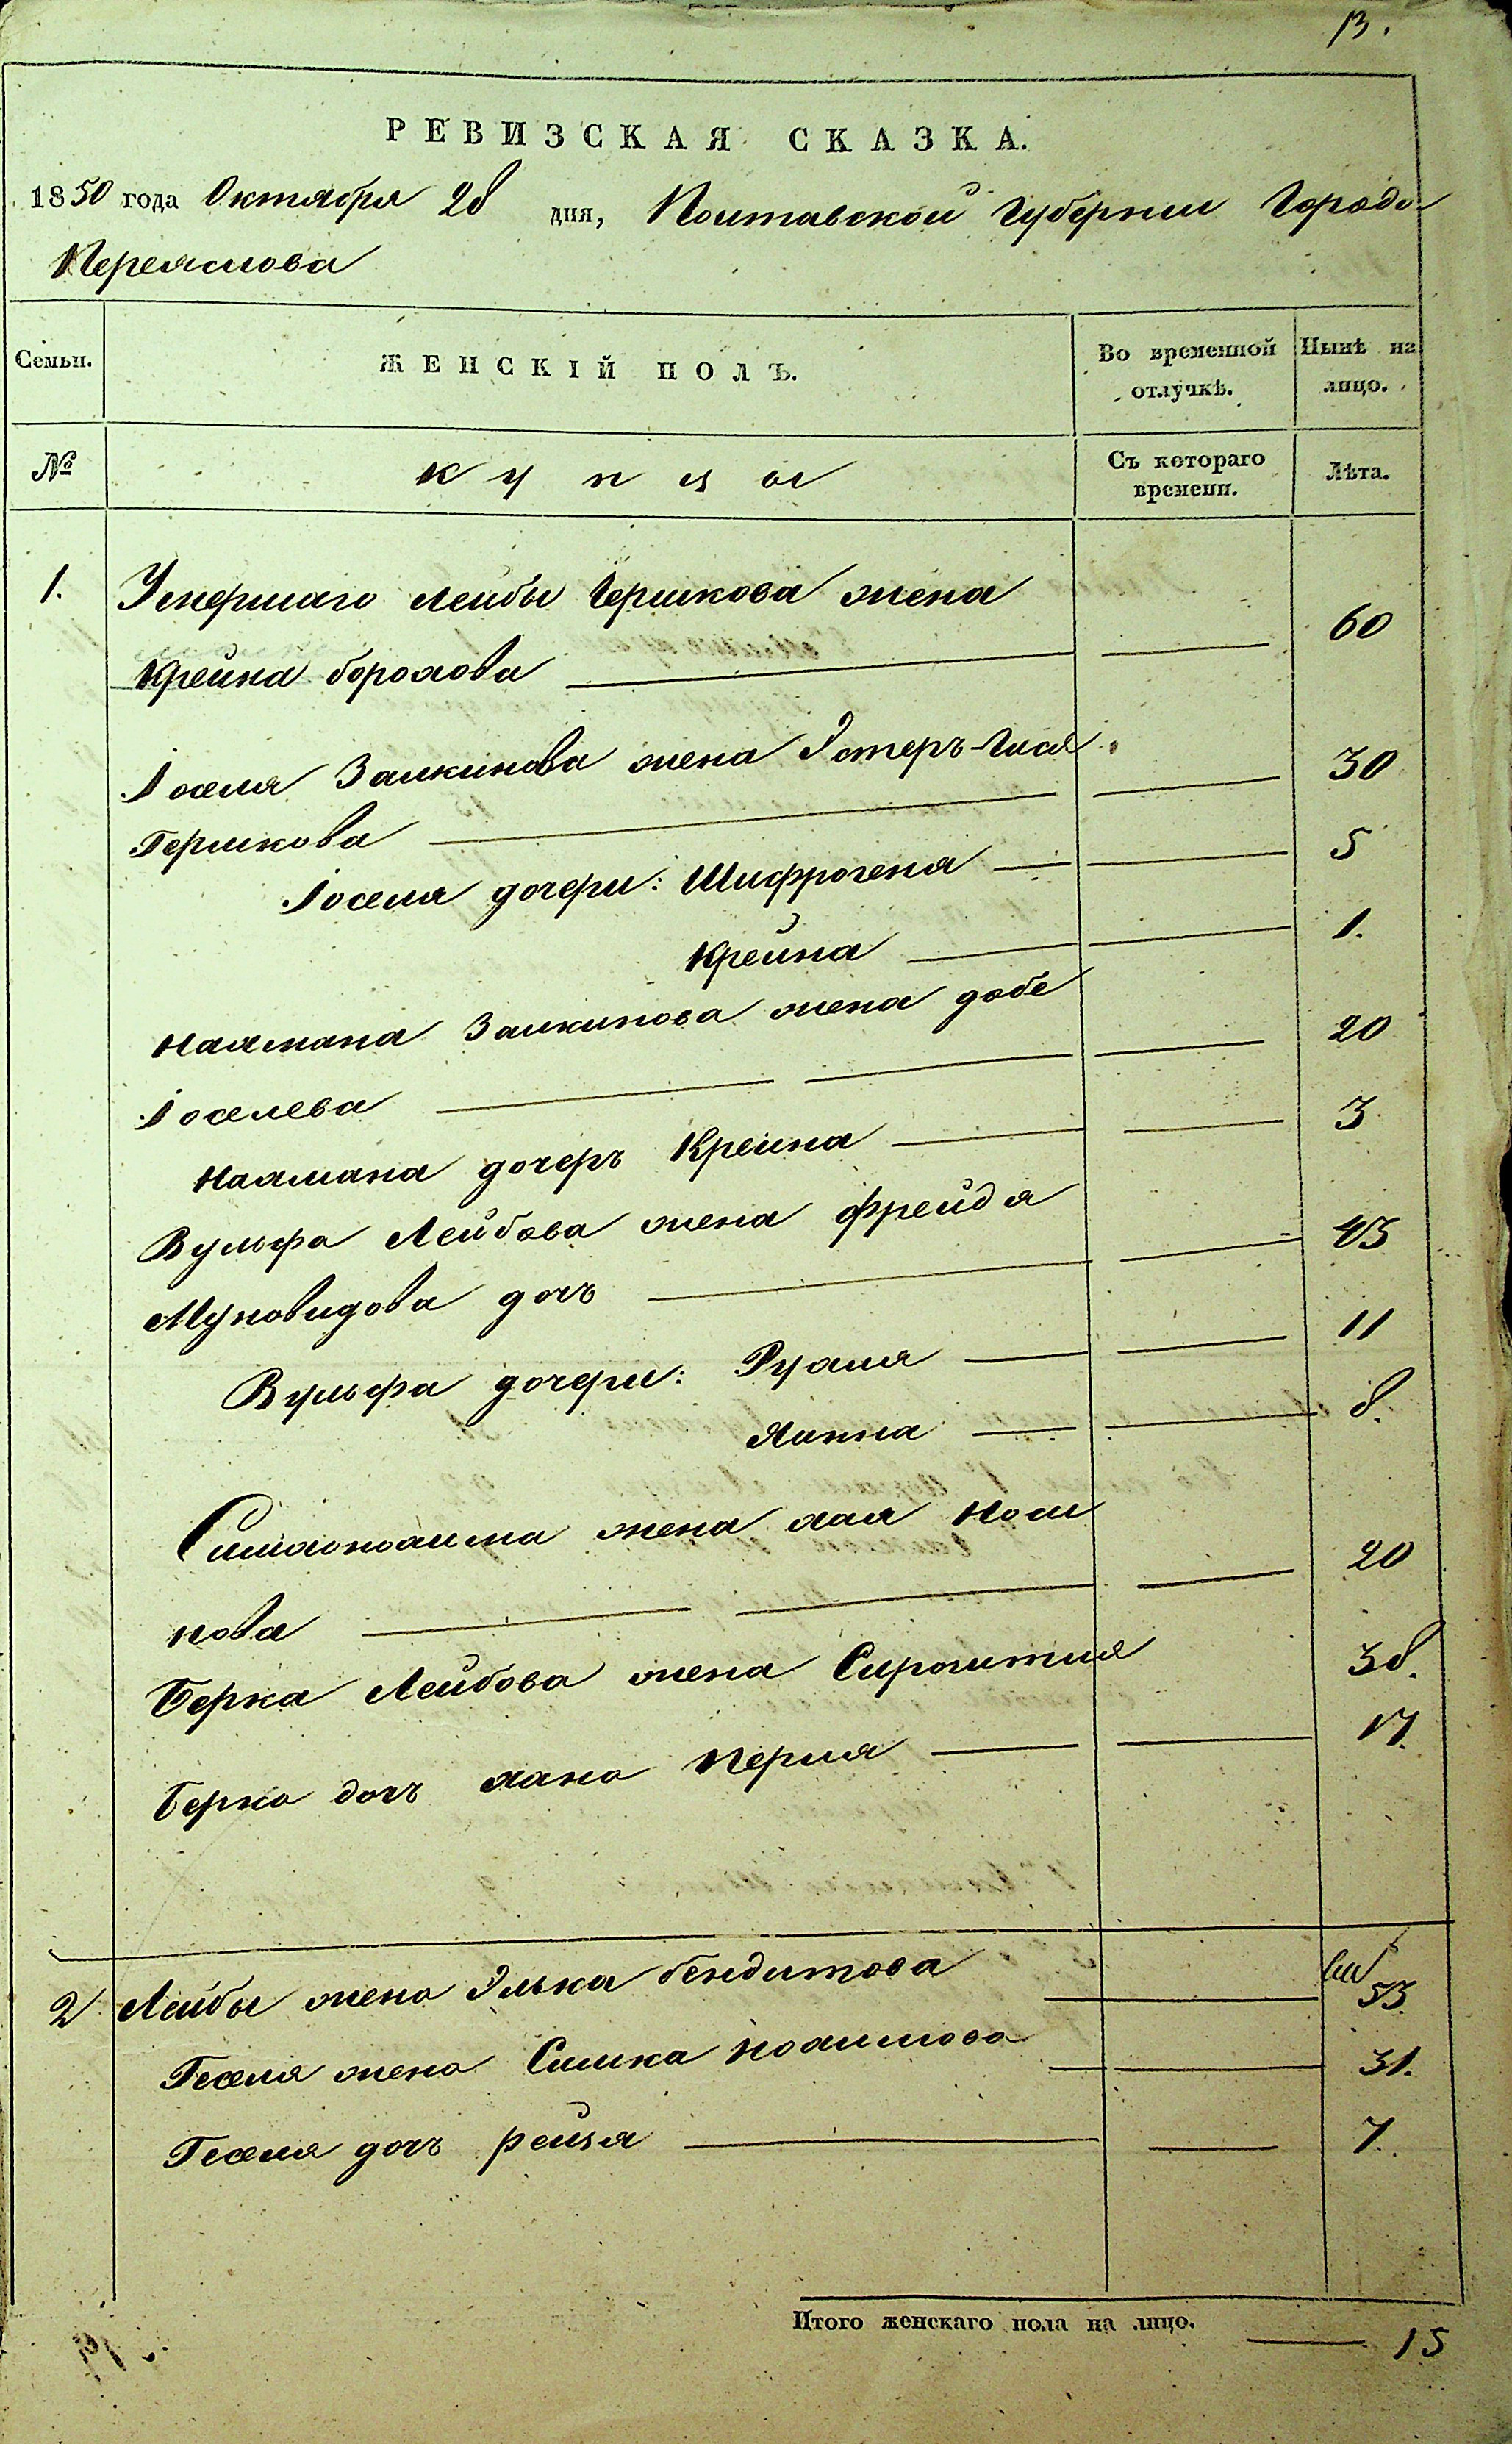 13.
РЕВИЗСКАЯ СКАЗКА.
1850 года Октября 28 дня, Полтавской Губернии Города
Переяслова
Семьи. ЖЕНСКІЙ ПОЛЪ. Во временной отлучкѣ. Нынѣ на лицо.
№ Купцы Съ котораго времени. Лѣта.
1. Умершаго Лейбы Гершкова жена
Крейна борохова 60
Иоселя Залкинова жена Эстеръ-Гися
Гершкова 30
Иоселя дочери: Шифрогеня 5
Крейна 1.
Калмана Залкинова жена добе
Иоселева 20
Калмана дочеръ Крейна 3
Вульфа Лейбова жена фрейда
дочъ 43
Вульфа дочери: Рухля 11
Ханна 8.
жена хая Носи
нова 20
Берка Лейбова жена 38.
Берка дочъ хана Перля 17.
2 Лейбы жена Элька бендитова 53
Геселя жена Симка 31.
Геселя дочъ рейзя 7.
Итого женскаго пола на лицо. 15